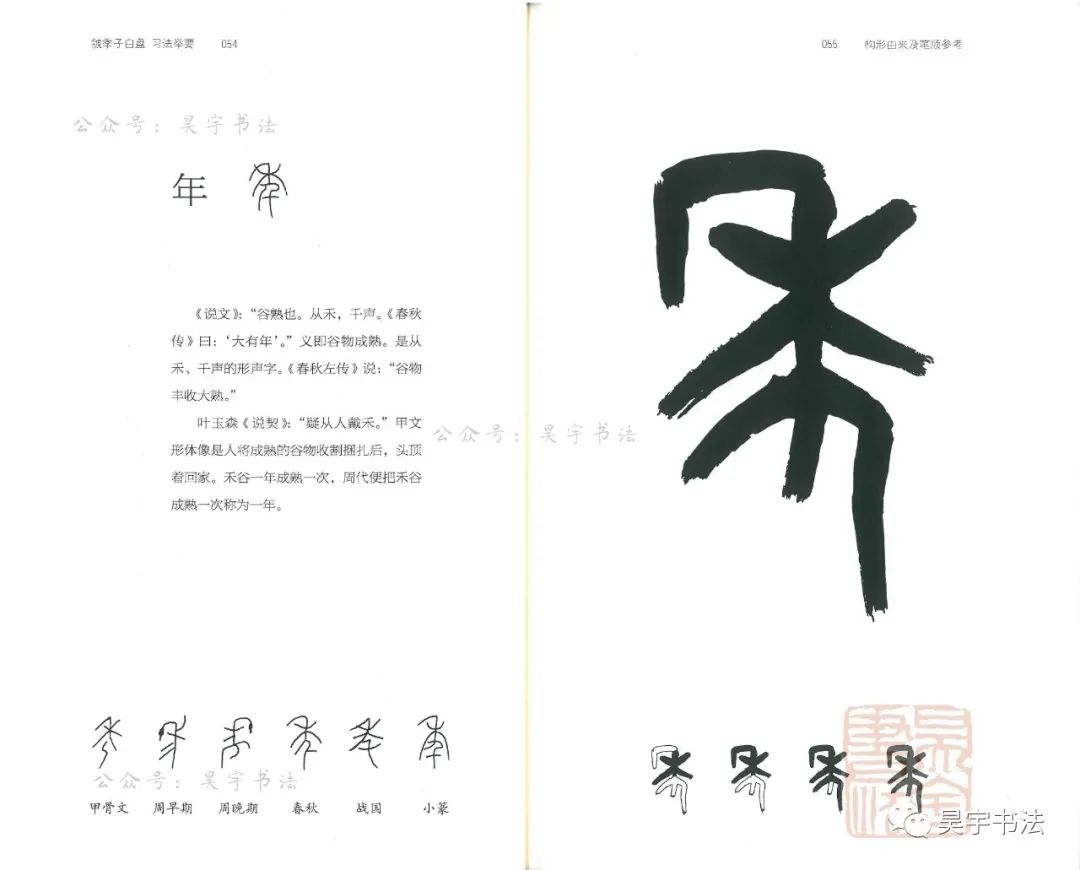 虢季子白盘 习法举要 054
055 构形由来及笔顺参考
公众号：昊宇书法
年
《说文》：“谷熟也。从禾，千声。《春秋
传》曰：‘大有年’。”义即谷物成熟。是从
禾、千声的形声字。《春秋左传》说：“谷物
丰收大熟。”
叶玉森《说契》：“疑从人戴禾。”甲文
形体像是人将成熟的谷物收割捆扎后，头顶
着回家。禾谷一年成熟一次，周代便把禾谷
成熟一次称为一年。
公众号：昊宇书法
公众号：昊宇书法
甲骨文 周早期 周晚期 春秋 战国 小篆
昊宇书法